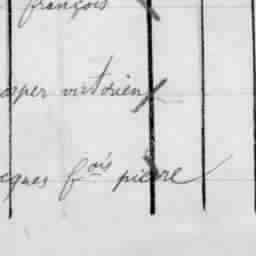 françois
osper victorien
cques f.ois pierre